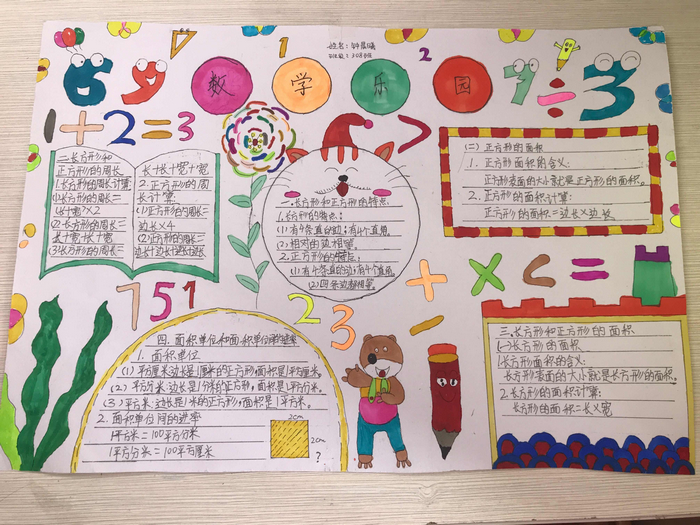 姓名:钟晨曦
班级:308班
数 学 乐 园
6 9
1
2
7÷3
1+2=3
>
二.长方形和
正方形的周长
1.长方形的周长计算:
(1)长方形的周长=
(长+宽)×2
(2)长方形的周长=
长+宽+长+宽
(3)长方形的周长=
长+长+宽+宽
2.正方形的周
长计算:
(1)正方形的周长=
边长×4
(2)正方形的周长=
边长+边长+边长+边长
一.长方形和正方形的特点.
1.长方形的特点:
(1)有4条直的边;有4个直角.
(2)相对的边相等.
2.正方形的特点:
(1)有4条直的边;有4个直角
(2)四条边都相等.
(二)正方形的面积
1.正方形面积的含义:
正方形表面的大小就是正方形的面积.
2.正方形的面积计算:
正方形的面积=边长×边长
+ × < =
751
23
−
四.面积单位和面积单位间的进率
1.面积单位
(1)平方厘米:边长是1厘米的正方形,面积是1平方厘米.
(2)平方分米:边长是1分米的正方形,面积是1平方分米.
(3)平方米:边长是1米的正方形,面积是1平方米.
2.面积单位间的进率
1平方米=100平方分米
1平方分米=100平方厘米
2cm
2cm
?
三.长方形和正方形的面积
(一)长方形的面积
1.长方形面积的含义:
长方形表面的大小就是长方形的面积.
2.长方形的面积计算:
长方形的面积=长×宽